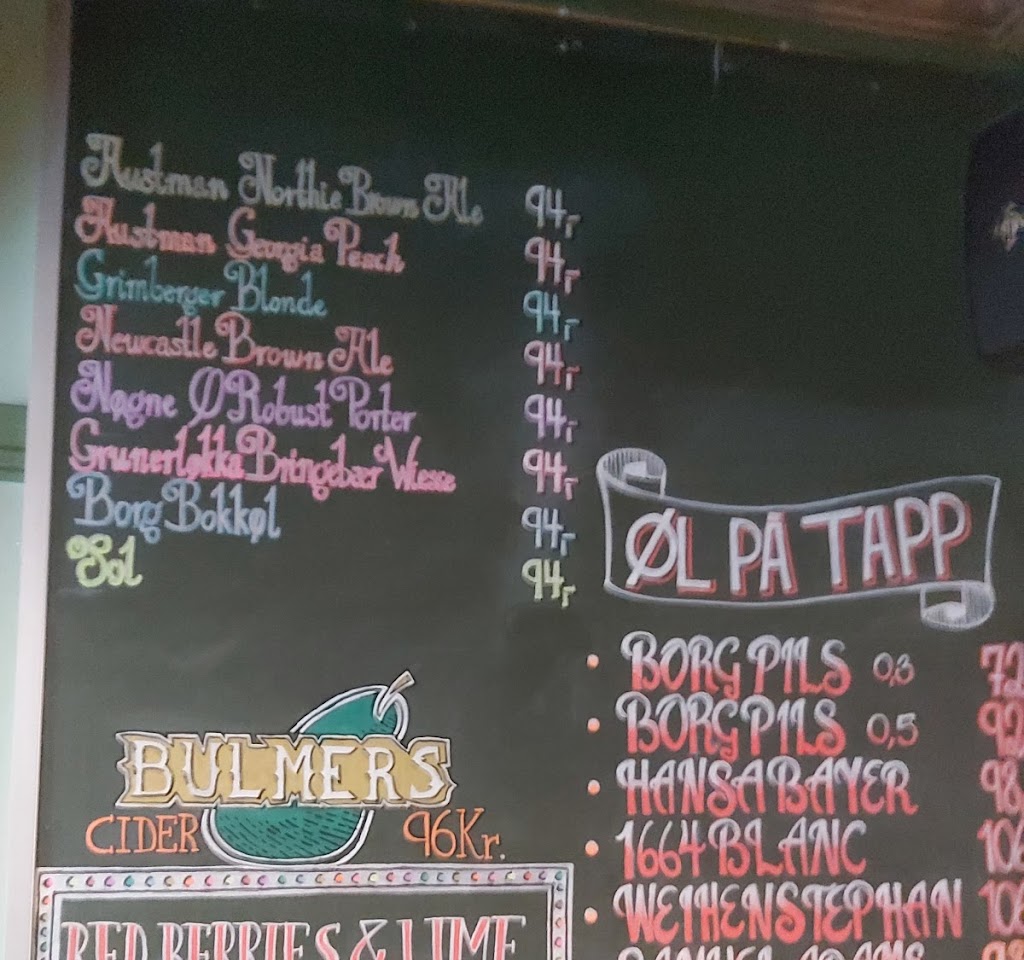 Austman Northie Brown Ale 94,-
Austman Georgia Peach 94,-
Grimberger Blonde 94,-
Newcastle Brown Ale 94,-
Nøgne Ø Robust Porter 94,-
Grunerløkka Bringebær Wiesse 94,-
Borg Bokkøl 94,-
Sol 94,-
BULMERS
CIDER 96Kr.
RED BERRIES & LIME
ØL PÅ TAPP
• BORG PILS 0,3 72
• BORG PILS 0,5 92
• HANSA BAYER 98
• 1664 BLANC 106
• WEIHENSTEPHAN 106